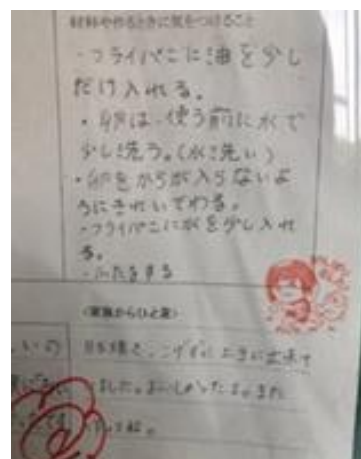 材料や作るときに気をつけること
・フライパンに油を少し
だけ入れる。
・卵は、使う前に水で
少し洗う。(水洗い)
・卵をからが入らないよ
うにきれいにわる。
・フライパンに水を少し入れ
る。
・ふたをする
〈家族からひと言〉
目玉焼き、こげずに上手に出来て
ました。おいしかったよ。また